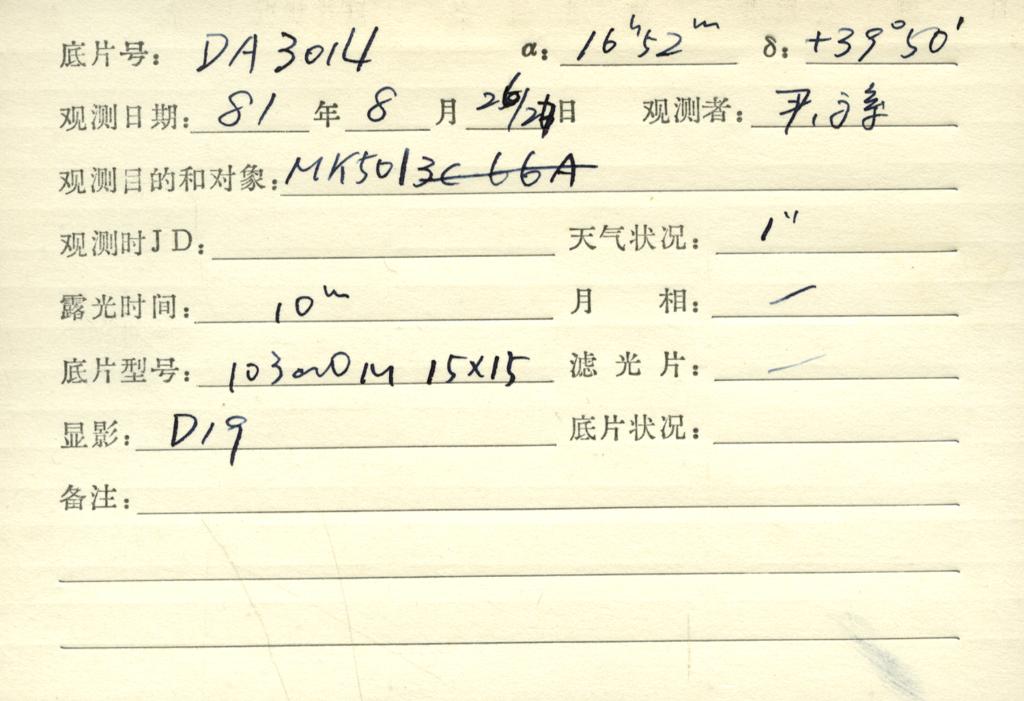 底片号: DA3014 α: 16ʰ52ᵐ δ: +39°50′
观测日期: 81 年 8 月 26/27日 观测者: 尹、
观测目的和对象: MK501 3C 66A
观测时JD: 天气状况: 1″
露光时间: 10ᵐ 月 相: —
底片型号: 103aO 15×15 滤光片: —
显影: D19 底片状况:
备注: